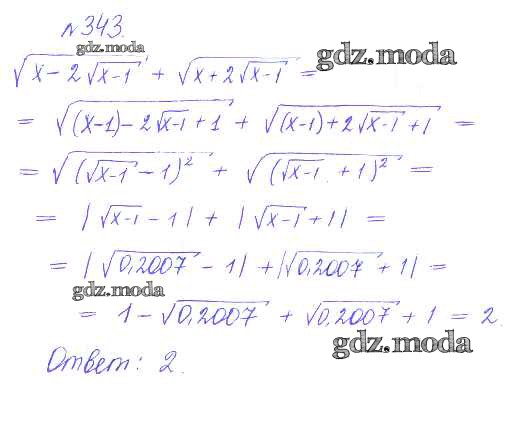 №343.
gdz.moda
√(x-2√(x-1)) + √(x+2√(x-1)) = gdz.moda
= √((x-1)-2√(x-1)+1) + √((x-1)+2√(x-1)+1) =
= √((√(x-1) -1)²) + √((√(x-1) +1)²) =
= |√(x-1) -1| + |√(x-1) +1| =
= |√0,2007 -1| + |√0,2007 +1| =
gdz.moda
= 1-√0,2007 + √0,2007 +1 = 2.
gdz.moda
Ответ: 2.